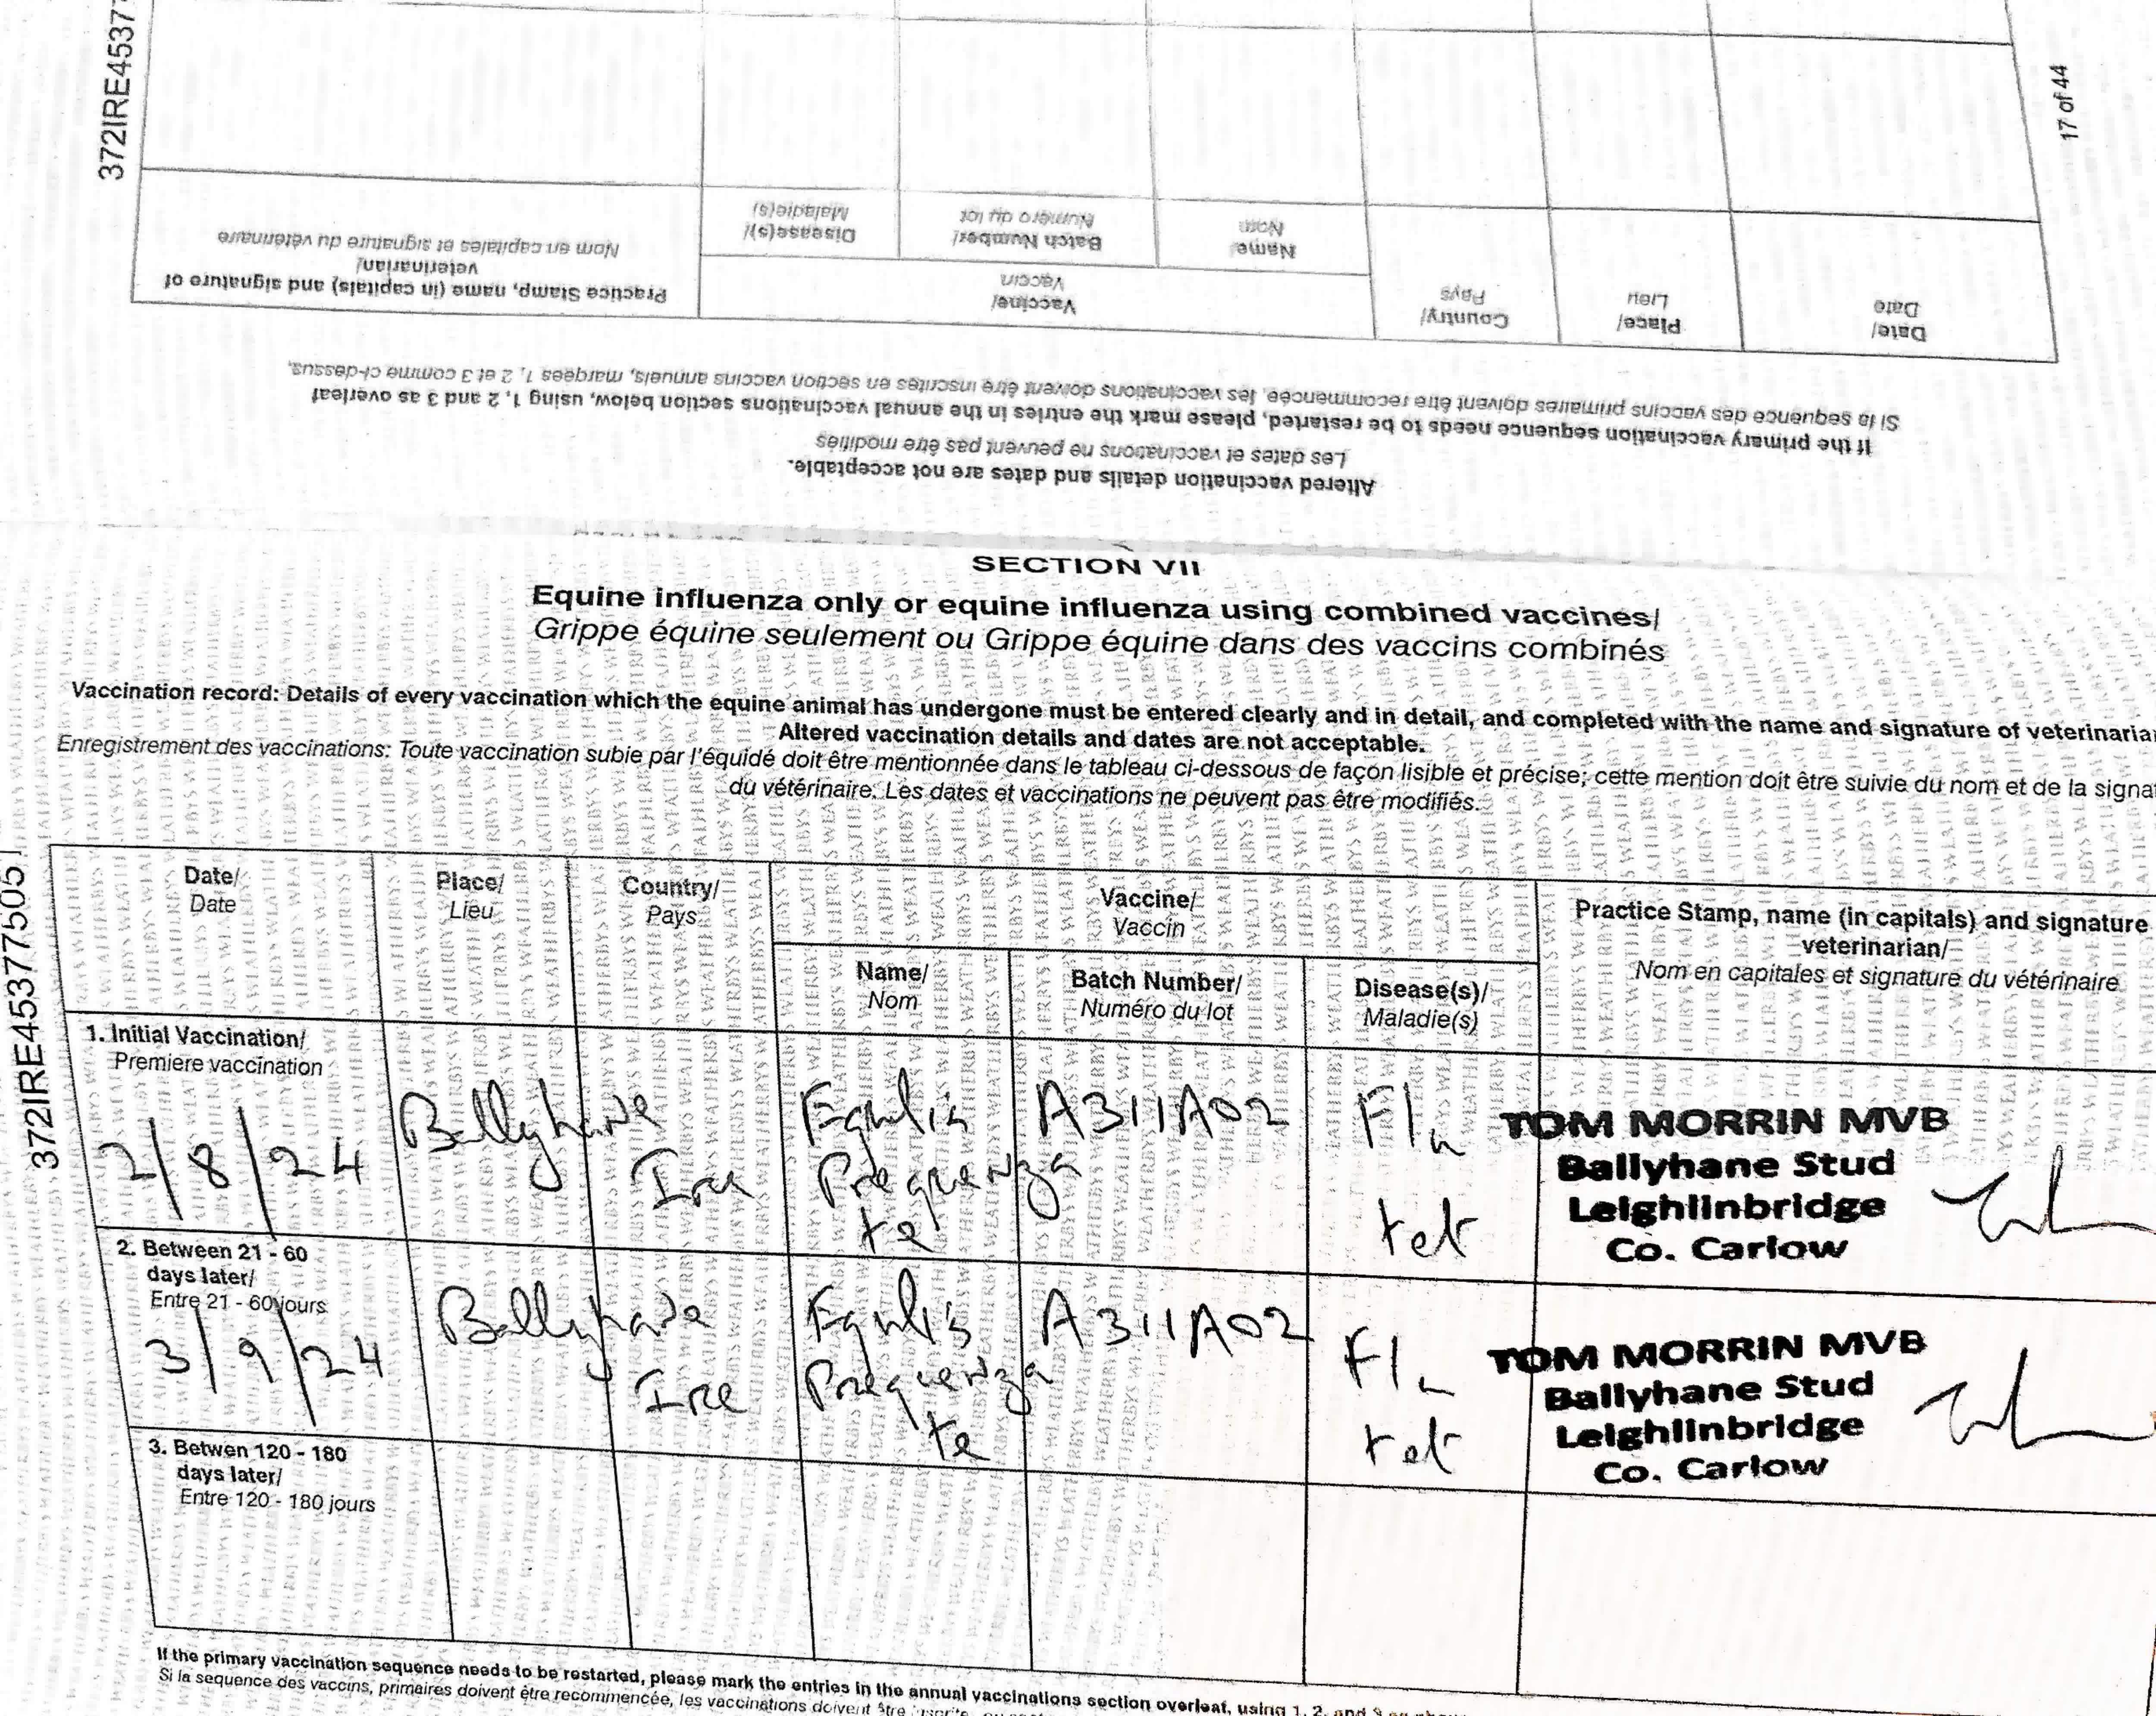 372IRE4537
17 of 44
Altered vaccination details and dates are not acceptable.
Les dates et vaccinations ne peuvent pas être modifiés
If the primary vaccination sequence needs to be restarted, please mark the entries in the annual vaccinations section below, using 1, 2 and 3 as overleaf
Si la sequence des vaccins primaires doivent être recommencée, les vaccinations doivent être inscrites en section vaccins annuels, marqées 1, 2 et 3 comme ci-dessus.
Date/
Date
Place/
Lieu
Country/
Pays
Vaccine/
Vaccin
Name
Nom
Batch Number/
Numéro du lot
Disease(s)/
Maladie(s)
Practice Stamp, name (in capitals) and signature of
veterinarian/
Nom en capitales et signature du vétérinaire
SECTION VII
Equine influenza only or equine influenza using combined vaccines/
Grippe équine seulement ou Grippe équine dans des vaccins combinés
Vaccination record: Details of every vaccination which the equine animal has undergone must be entered clearly and in detail, and completed with the name and signature of veterinaria
Altered vaccination details and dates are not acceptable.
Enregistrement des vaccinations: Toute vaccination subie par l'équidé doit être mentionnée dans le tableau ci-dessous de façon lisible et précise; cette mention doit être suivie du nom et de la signa
du vétérinaire. Les dates et vaccinations ne peuvent pas être modifiés.
372IRE45377505
Date/
Date
Place/
Lieu
Country/
Pays
Vaccine/
Vaccin
Name/
Nom
Batch Number/
Numéro du lot
Disease(s)/
Maladie(s)
Practice Stamp, name (in capitals) and signature
veterinarian/
Nom en capitales et signature du vétérinaire
1. Initial Vaccination/
Premiere vaccination
2/8/24
Ballyhane
Ire
Equilis
Prequenza
te
A311A02
Flu
tet
TOM MORRIN MVB
Ballyhane Stud
Leighlinbridge
Co. Carlow
2. Between 21 - 60
days later/
Entre 21 - 60 jours
3/9/24
Ballyhane
Ire
Equilis
Prequenza
te
A311A02
Flu
tet
TOM MORRIN MVB
Ballyhane Stud
Leighlinbridge
Co. Carlow
3. Betwen 120 - 180
days later/
Entre 120 - 180 jours
If the primary vaccination sequence needs to be restarted, please mark the entries in the annual vaccinations section overleaf, using 1, 2, and 3
Si la sequence des vaccins, primaires doivent être recommencée, les vaccinations doivent être